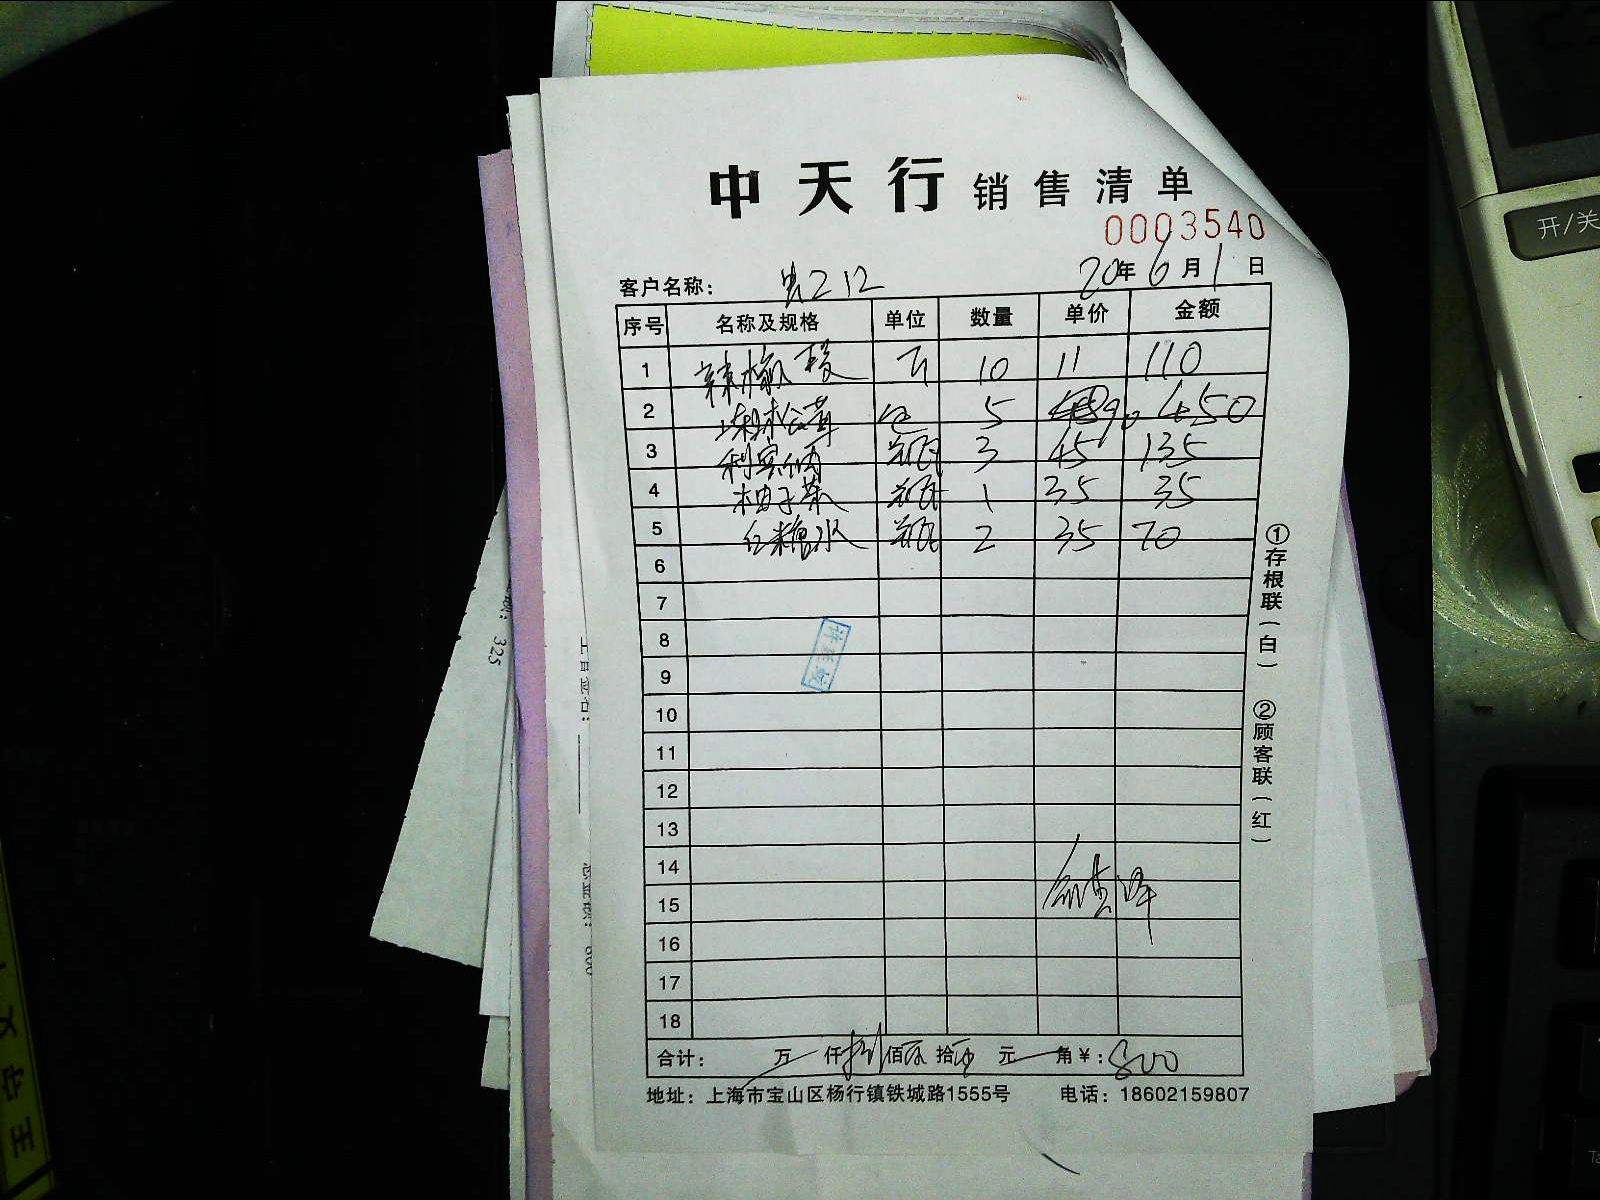 中天行 销售清单
0003540
客户名称: 212 20年6月1日
序号 名称及规格 单位 数量 单价 金额
1 10 11 110
2 包 5 90 450
3 利宾纳 瓶 3 45 135
4 柚子茶 瓶 1 35 35
5 红糖水 瓶 2 35 70
6
7
8
9
10
11
12
13
14
15
16
17
18
合计: 万 仟捌佰 拾 元 角¥: 800
地址: 上海市宝山区杨行镇铁城路1555号 电话: 18602159807
①存根联(白) ②顾客联(红)
325
开/关